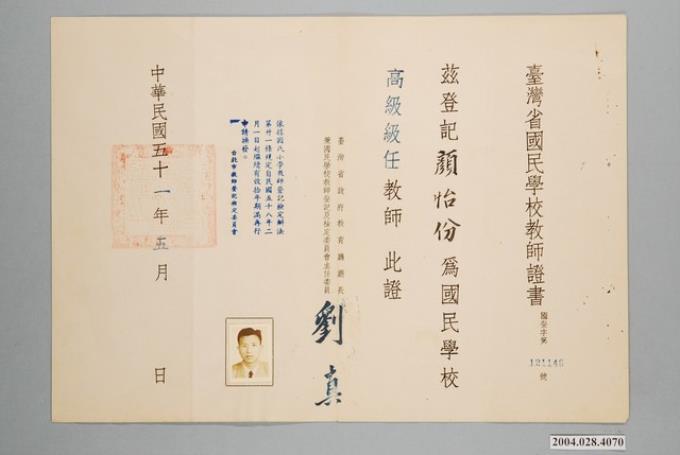 臺灣省國民學校教師證書
國登字第121146號
茲登記顏怡份爲國民學校
高級級任教師 此證
臺灣省政府教育廳廳長
兼國民學校教師登記及檢定委員會主任委員
劉真
依據國民小學教師登記檢定辦法
第廿一條規定自民國五十八年二
月一日起繼續有效拾年期滿再行
申請換發。
台北市教師登記檢定委員會
中華民國五十一年五月 日
2004.028.4070